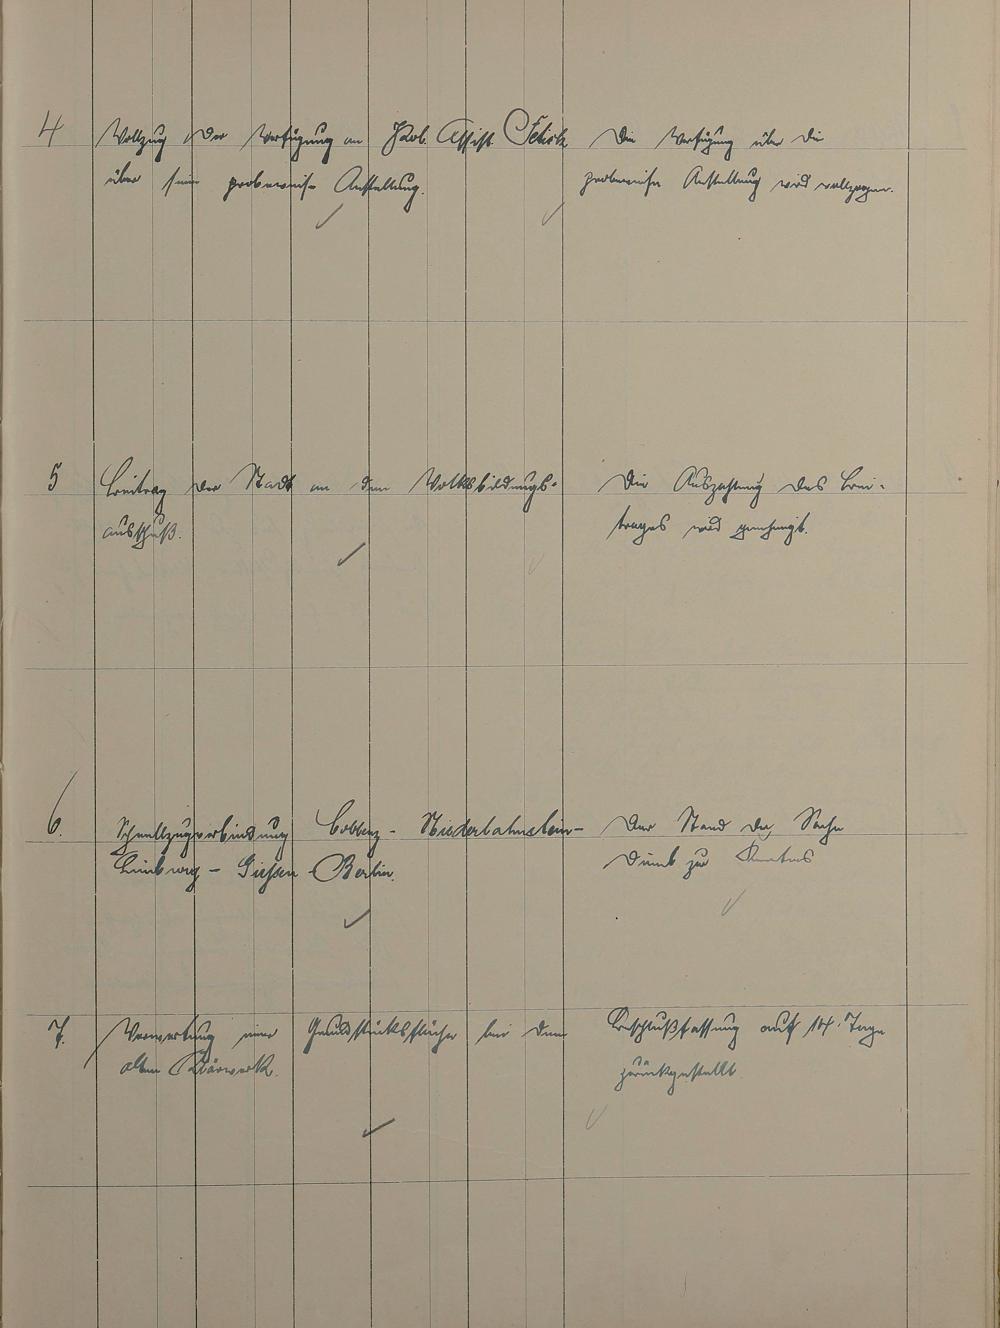 4 Vollzug der Verfügung an Assist.
über seine probeweise Anstellung.
Die Verfügung über die
probeweise Anstellung wird vollzogen.
5 Beitrag der Stadt an den Volksbildungs-
ausschuß.
Die Auszahlung des Bei-
trages wird genehmigt.
6. Schnellzugverbindung Coblenz - Niederlahnstein-
Limburg - Giessen - Berlin.
Der Stand der Sache
dient zur Kenntnis
7. Verwertung einer Grundstücksfläche bei dem
alten Klärwerk.
Beschlußfassung auf 14. Tage
zurückgestellt